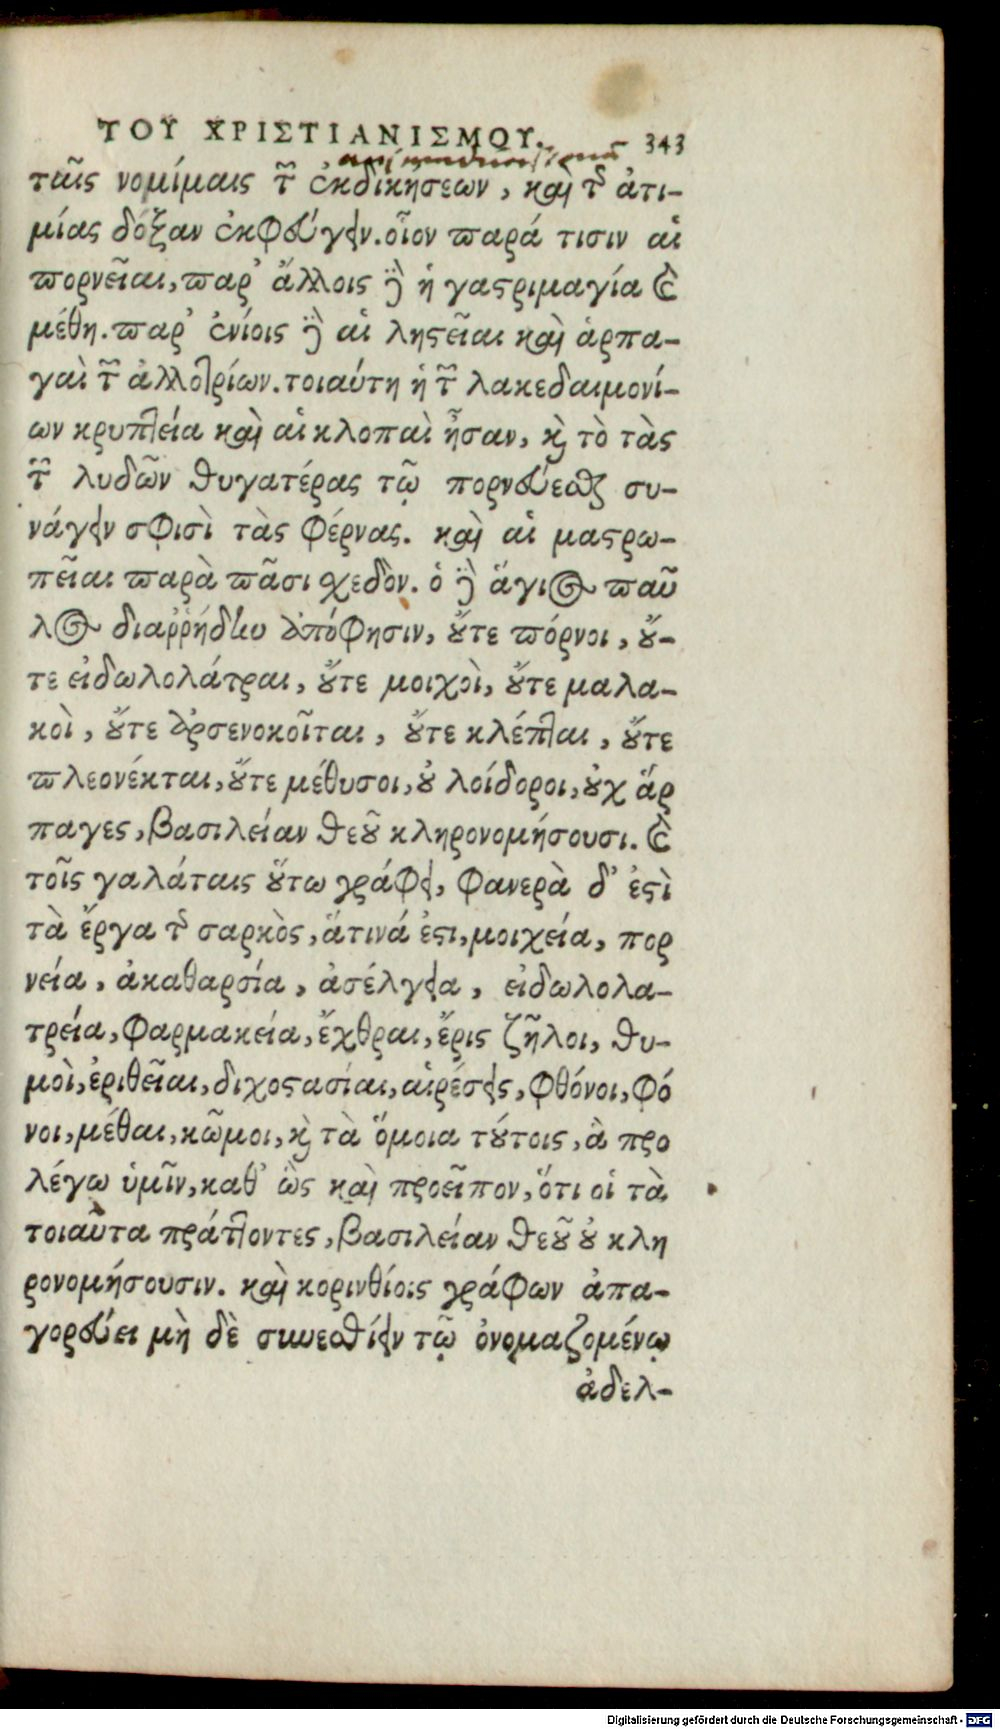 ΤΟΥ ΧΡΙΣΤΙΑΝΙΣΜΟΥ. 343
ταῖς νομίμαις τῶν ἐκδικήσεων, καὶ τῆς ἀτι-
μίας δόξαν ἐκφεύγειν. οἷον παρά τισιν αἱ
πορνεῖαι, παρ' ἄλλοις δὲ ἡ γαστριμαγία καὶ
μέθη. παρ' ἐνίοις δὲ αἱ λῃστεῖαι καὶ ἁρπα-
γαὶ τῶν ἀλλοτρίων. τοιαύτη ἡ τῶν λακεδαιμονί-
ων κρυπτεία καὶ αἱ κλοπαὶ ἦσαν, καὶ τὸ τὰς
τῶν λυδῶν θυγατέρας τῷ πορνεύεσθαι συ-
νάγειν σφισὶ τὰς φέρνας. καὶ αἱ μαστρω-
πεῖαι παρὰ πᾶσι σχεδόν. ὁ δὲ ἅγιος παῦ
λος διαῤῥήδην ἀπόφησιν, οὔτε πόρνοι, οὔ-
τε εἰδωλολάτραι, οὔτε μοιχοὶ, οὔτε μαλα-
κοὶ, οὔτε ἀρσενοκοῖται, οὔτε κλέπται, οὔτε
πλεονέκται, οὔτε μέθυσοι, οὐ λοίδοροι, οὐχ ἅρ
παγες, βασιλείαν θεοῦ κληρονομήσουσι. καὶ
τοῖς γαλάταις οὕτω γράφει, φανερὰ δ' ἐστὶ
τὰ ἔργα τῆς σαρκὸς, ἅτινά ἐστι, μοιχεία, πορ
νεία, ἀκαθαρσία, ἀσέλγεια, εἰδωλολα-
τρεία, φαρμακεία, ἔχθραι, ἔρις ζῆλοι, θυ-
μοὶ, ἐριθεῖαι, διχοστασίαι, αἱρέσεις, φθόνοι, φό
νοι, μέθαι, κῶμοι, καὶ τὰ ὅμοια τούτοις, ἃ προ
λέγω ὑμῖν, καθ' ὣς καὶ προεῖπον, ὅτι οἱ τὰ
τοιαῦτα πράττοντες, βασιλείαν θεοῦ οὐ κλη
ρονομήσουσιν. καὶ κορινθίοις γράφων ἀπα-
γορεύει μὴ δὲ συνεσθίειν τῷ ὀνομαζομένῳ
ἀδελ-
Digitalisierung gefördert durch die Deutsche Forschungsgemeinschaft - DFG